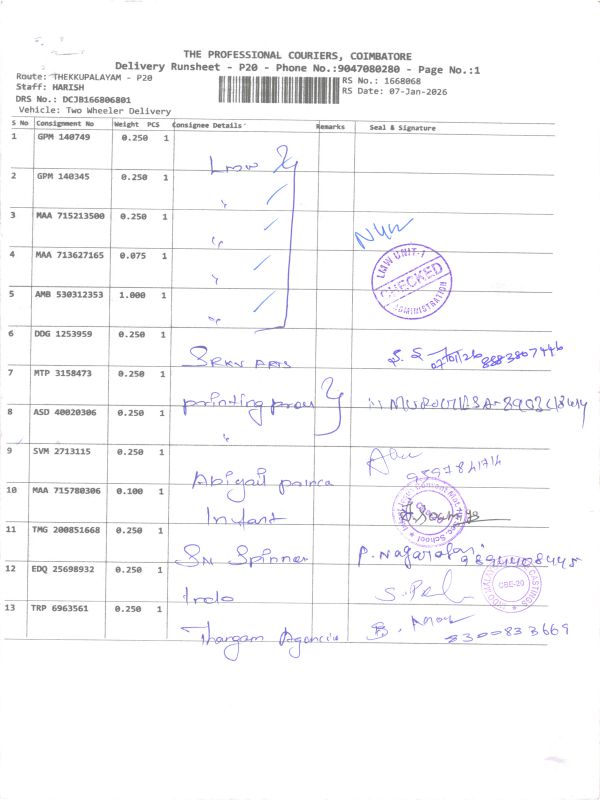 THE PROFESSIONAL COURIERS, COIMBATORE
Delivery Runsheet - P20 - Phone No.:9047080280 - Page No.:1
Route: THEKKUPALAYAM - P20
RS No.: 1668068
Staff: HARISH
RS Date: 07-Jan-2026
DRS No.: DCJB166806801
Vehicle: Two Wheeler Delivery
S No Consignment No Weight PCS Consignee Details Remarks Seal & Signature
1 GPM 140749 0.250 1
Lmw 2
2 GPM 140345 0.250 1
"
3 MAA 715213500 0.250 1
"
4 MAA 713627165 0.075 1
"
LMW UNIT-1
CHECKED
ADMINISTRATION
5 AMB 530312353 1.000 1
"
6 DDG 1253959 0.250 1
SRKV
07/01/26 8883807446
7 MTP 3158473 0.250 1
printing press
8 ASD 40020306 0.250 1
"
9 SVM 2713115 0.250 1
Abigail
10 MAA 715780306 0.100 1
Infant
11 TMG 200851668 0.250 1
SN Spinner P. Nagarajan
12 EDQ 25698932 0.250 1
Indo
CASTINGS
CBE-20
13 TRP 6963561 0.250 1
Thangam Agencies